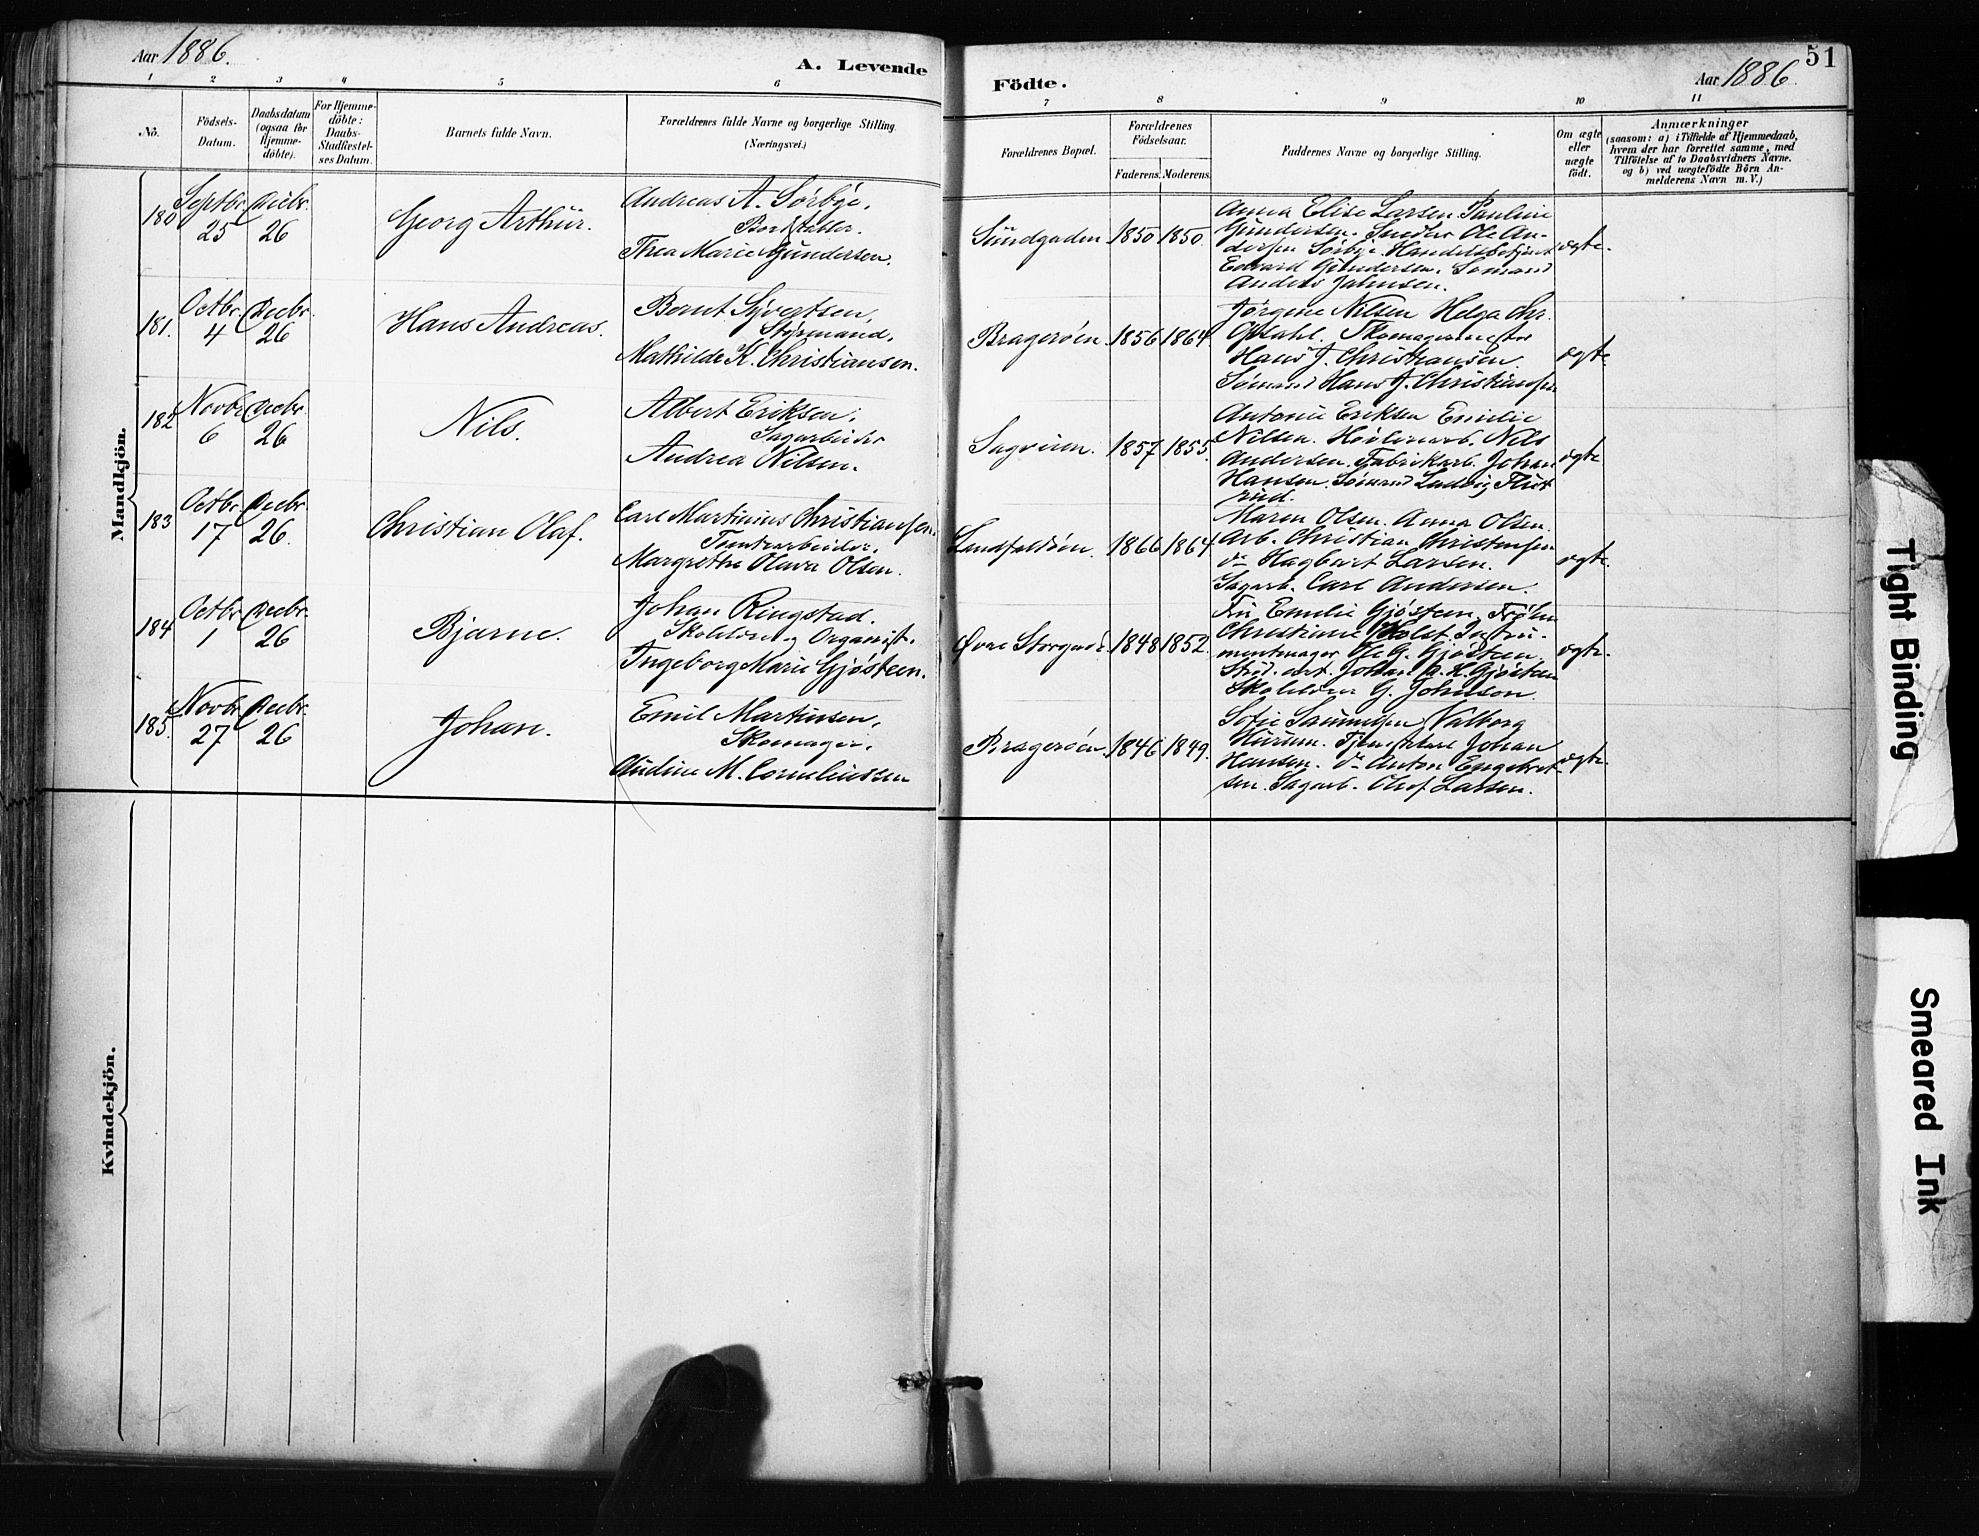 Aar 1886.
A. Levende
1 2 3 4 5 6
No.
Födsels-
Datum.
Daabsdatum
(ogsaa for
Hjemme-
döbte).
For Hjemme-
döbte:
Daabs-
Stadfæstel-
ses Datum.
Barnets fulde Navn.
Forældrenes fulde Navne og borgerlige Stilling
(Næringsvei.)
Mandkjön.
180 Septbr. 25 Decbr. 26 Georg Arthur.
Andreas A. Sørbye.
Bordstabler.
Thea Marie Gundersen.
181. Octbr. 4 Decbr. 26 Hans Andreas.
Bernt Syvertsen,
Styrmand.
Mathilde K. Christiansen.
182 Novbr. 6 Decbr. 26 Nils.
Albert Eriksen,
Sagarbeider
Andrea Nilsen.
183 Octbr. 17 Decbr. 26. Christian Olaf.
Carl Martinius Christiansen.
Tomtearbeider.
Margrethe Olava Olsen.
184 Octbr. 1 Decbr. 26 Bjarne.
Johan Ringstad.
Skolelærer og Organist.
Ingeborg Marie Gjøsteen.
185. Novbr. 27 Decbr. 26 Johan.
Emil Martinsen,
Skomager.
Audine M. Corneliussen
Kvindekjön.
Födte.
Aar 1886.
51
7 8 9 10 11
Forældrenes Bopæl.
Forældrenes
Födselsaar.
Faderens. Moderens.
Faddernes Navne og borgerlige Stilling.
Om ægte
eller
uægte
födt.
Anmærkninger
(saasom: a) i Tilfælde af Hjemmedaab,
hvem der har forrettet samme, med
Tilföielse af to Daabsvidners Navne,
og b) ved uægtefödte Börn An-
melderens Navn m. V.)
Sundgaden 1850 1850.
Anna Elise Larsen. Pauline
Gundersen. Snedker Ole An-
dersen Sørbye. Handelsbetjent
Edvard Gundersen. Sømand
Anders Jahnsen.
ægte.
Bragerøen. 1856 1864
Jørgine Nilsen Helga Chr.
Opdahl. Skomagermester
Hans J. Christiansen
Sømand Hans J. Christiansen
ægte.
Sagveien. 1857 1855.
Antonie Eriksen Emilie
Nilsen. Høvleriarb. Nils
Andersen. Fabrikarb. Johan
Hansen. Sømand Ludvig
ægte
Landfaldøen. 1866 1864
Maren Olsen. Anna Olsen.
Arb. Christian Christensen
do Hagbart Larsen.
Sagarb. Carl Andersen.
ægte.
Øvre Storgade. 1848 1852.
Fru Emilie Gjøsteen, Frøken
Christiane Holst. Instru-
mentmager Ole G. Gjøsteen
Stud. art. Johan A. K. Gjøsteen
Skolelærer G. Johnson.
ægte.
Bragerøen 1846 1849.
Sofie Valborg
Hurum. Johan
Hansen. do Anton Engebret-
sen. Sagarb. Olof Larsen.
ægte.
Tight Binding
Smeared Ink